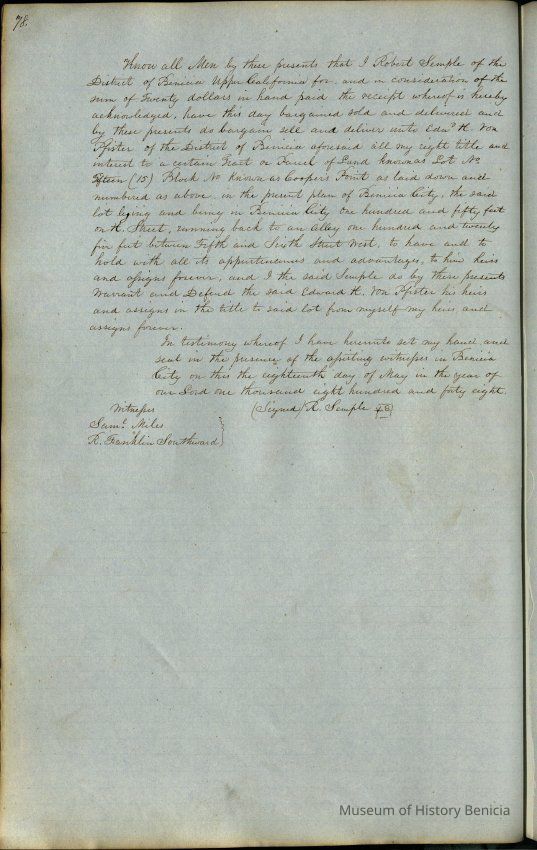 78.
Know all Men by these presents that I Robert Semple of the
District of Benicia Upper California for and in consideration of the
sum of Twenty dollars in hand paid the receipt whereof is hereby
acknowledged, have this day bargained sold and delivered and
by these presents do bargain sell and deliver unto Edwd H. Von
Pfister of the District of Benicia aforesaid all my right title and
interest to a certain Tract or Parcel of Land known as Lot No
fifteen (15) Block No known as Coopers Point as laid down and
numbered as above in the present plan of Benicia City, the said
lot lying and being in Benicia City One hundred and fifty feet
on H. Street, running back to an alley one hundred and twenty
five feet between Fifth and Sixth Street West, to have and to
hold with all its appurtenances and advantages, to him heirs
and assigns forever, and I the said Semple do by these presents
Warrant and Defend the said Edward H. Von Pfister his heirs
and assigns in the title to said lot from myself my heirs and
assigns forever.
In testimony whereof I have hereunto set my hand and
seal in the presence of the aforesaid witnesses in Benicia
City on this the eighteenth day of May in the year of
our Lord one thousand eight hundred and forty eight.
Witnesses (Signed) R. Semple
Saml. Miles
R. Franklin Southward
Museum of History Benicia